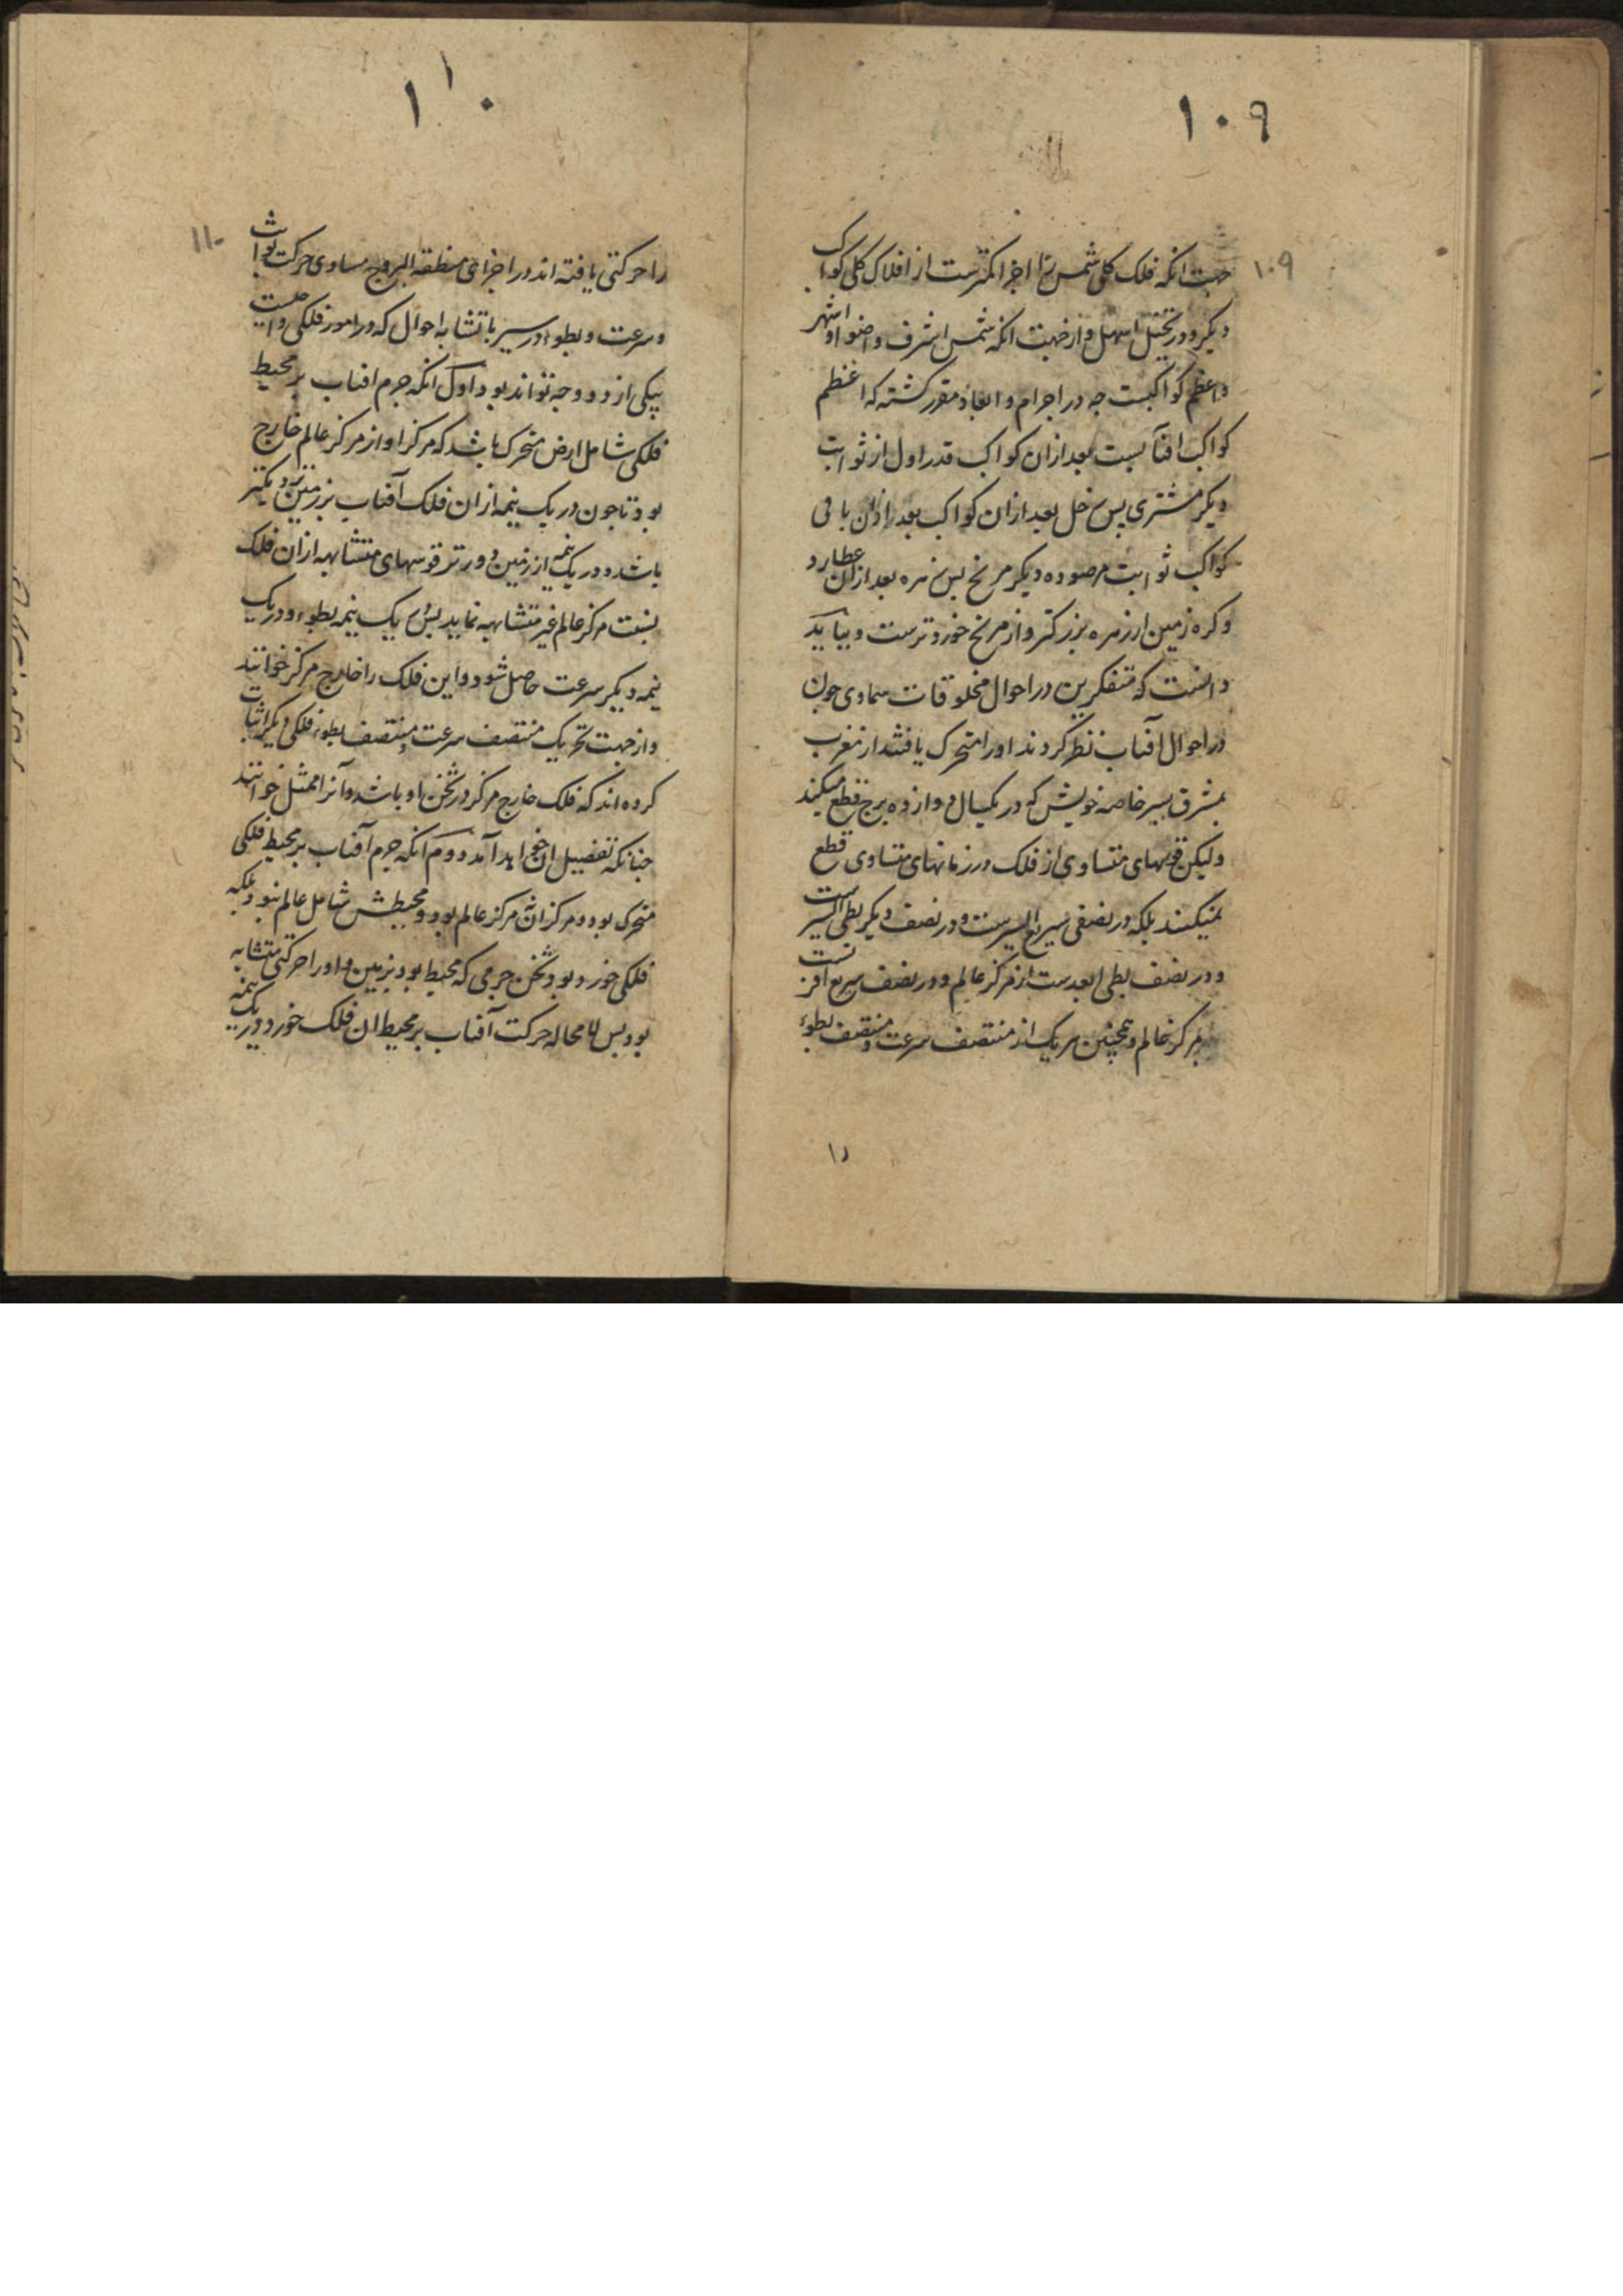 ۱۰۹
۱۰۹
جهت انکه فلک کلی شمس را اجزا کمترست از افلاک کلی کواکب
دیکر و در تخیل اسهل و از جهت انکه شمس اشرف و اضوا و اشهر
و اعظم کواکبست جه در اجرام و ابعاد مقرر کشته که اعظم
کواکب افتابست بعد از ان کواکب قدر اول از ثوابت
دیکر مشتری بس زحل بعد از ان کواکب بعد از ان باقی
کواکب ثوابت مرصوده دیکر مریخ بس زهره بعد از ان عطارد
و کره زمین از زهره بزرکتر و از مریخ خوردترست و بباید
دانست که متفکرین در احوال مخلوقات سماوی جون
در احوال آفتاب نظر کردند او را متحرک یافتند از مغرب
بمشرق بسیر خاصه خویش که در یکسال دوازده برج قطع میکند
ولیکن قوسهای متساوی از فلک در زمانهای متساوی قطع
نمیکند بلکه در نصفی سریع السیرست و در نصف دیکر بطی السیر است
و در نصف بطی ابعدست از مرکز عالم و در نصف سریع اقربست
بمرکز عالم و همچنین هر یک از منتصف سرعت و منتصف بطوء
را
۱۱۰
۱۱۰
را حرکتی یافته اند در اجزای منطقه البروج مساوی حرکت ثوابت
و سرعت و بطوء در سیر با تشابه احوال که در امور فلکی واجبست
بیکی از دو وجه تواند بود اول انکه جرم افتاب بر محیط
فلکی شامل ارض متحرک باشد که مرکز او از مرکز عالم خارج
بود تا جون در یک نیمه از ان فلک آفتاب بزمین نزدیکتر
باشد و در یک نیمه از زمین دورتر قوسهای متشابهه از ان فلک
بنسبت مرکز عالم غیر متشابهه نماید بس در یک نیمه بطوء و در یک
نیمه دیکر سرعت حاصل شود و این فلک را خارج مرکز خوانند
و از جهت تحریک منتصف سرعت و منتصف بطوء فلکی دیکر اثبات
کرده اند که فلک خارج مرکز در ثخن او باشد و آنرا ممثل خوانند
جنانکه تفصیل ان خواهد آمد دوم انکه جرم آفتاب بر محیط فلکی
متحرک بود و مرکز ان نه مرکز عالم بود و محیطش شامل عالم نبود بلکه
فلکی خورد بود در ثخن جرمی که محیط بود بزمین و او را حرکتی متشابه
بود بس لا محاله حرکت آفتاب بر محیط ان فلک خورد در یک نیمه